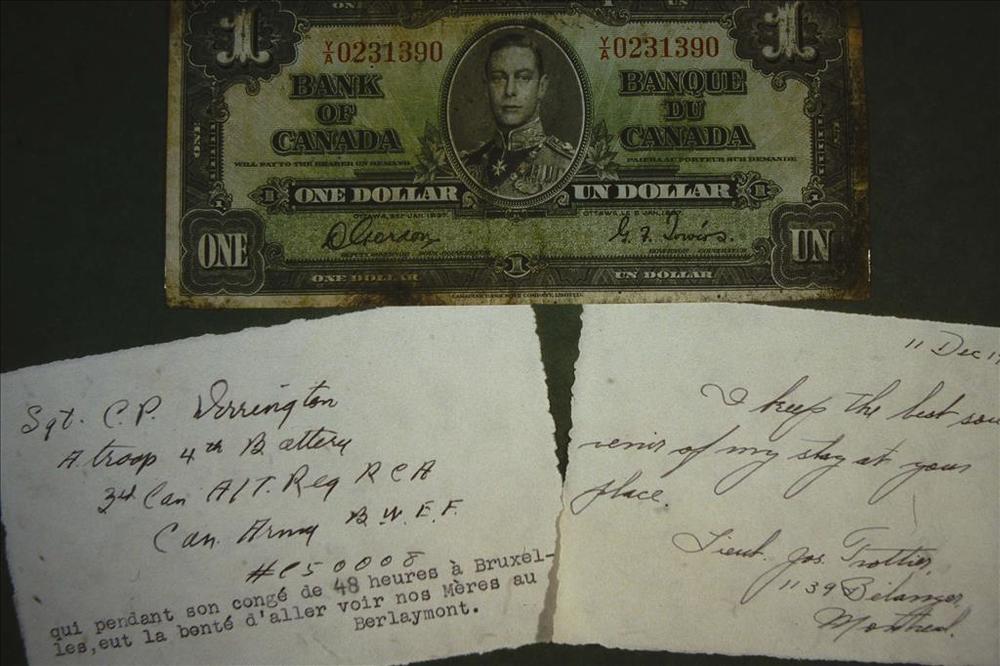 ONE 1 UN
1 Y/A 0231390 Y/A 0231390 1
BANK OF CANADA
BANQUE DU CANADA
WILL PAY TO THE BEARER ON DEMAND
PAIERA AU PORTEUR SUR DEMANDE
ONE
ONE DOLLAR UN DOLLAR
OTTAWA, 2ND JAN. 1937. OTTAWA, LE 2 JAN. 1937.
DGordon G. F. Towers.
DEPUTY GOVERNOR GOVERNOR
ONE 1 UN
ONE DOLLAR UN DOLLAR
CANADIAN BANK NOTE COMPANY, LIMITED
Sgt. C.P. Derrington
A troop 4th Battery
3rd Can A/T. Reg RCA
Can. Army B.W.E.F.
#C50008
qui pendant son congé de 48 heures à Bruxel-
les,eut la bonté d'aller voir nos Mères au
Berlaymont.
11 Dec 1
I keep the best sou
venir of my stay at your
place.
Lieut. Jos. Trottier,
1139 Bélanger,
Montreal.